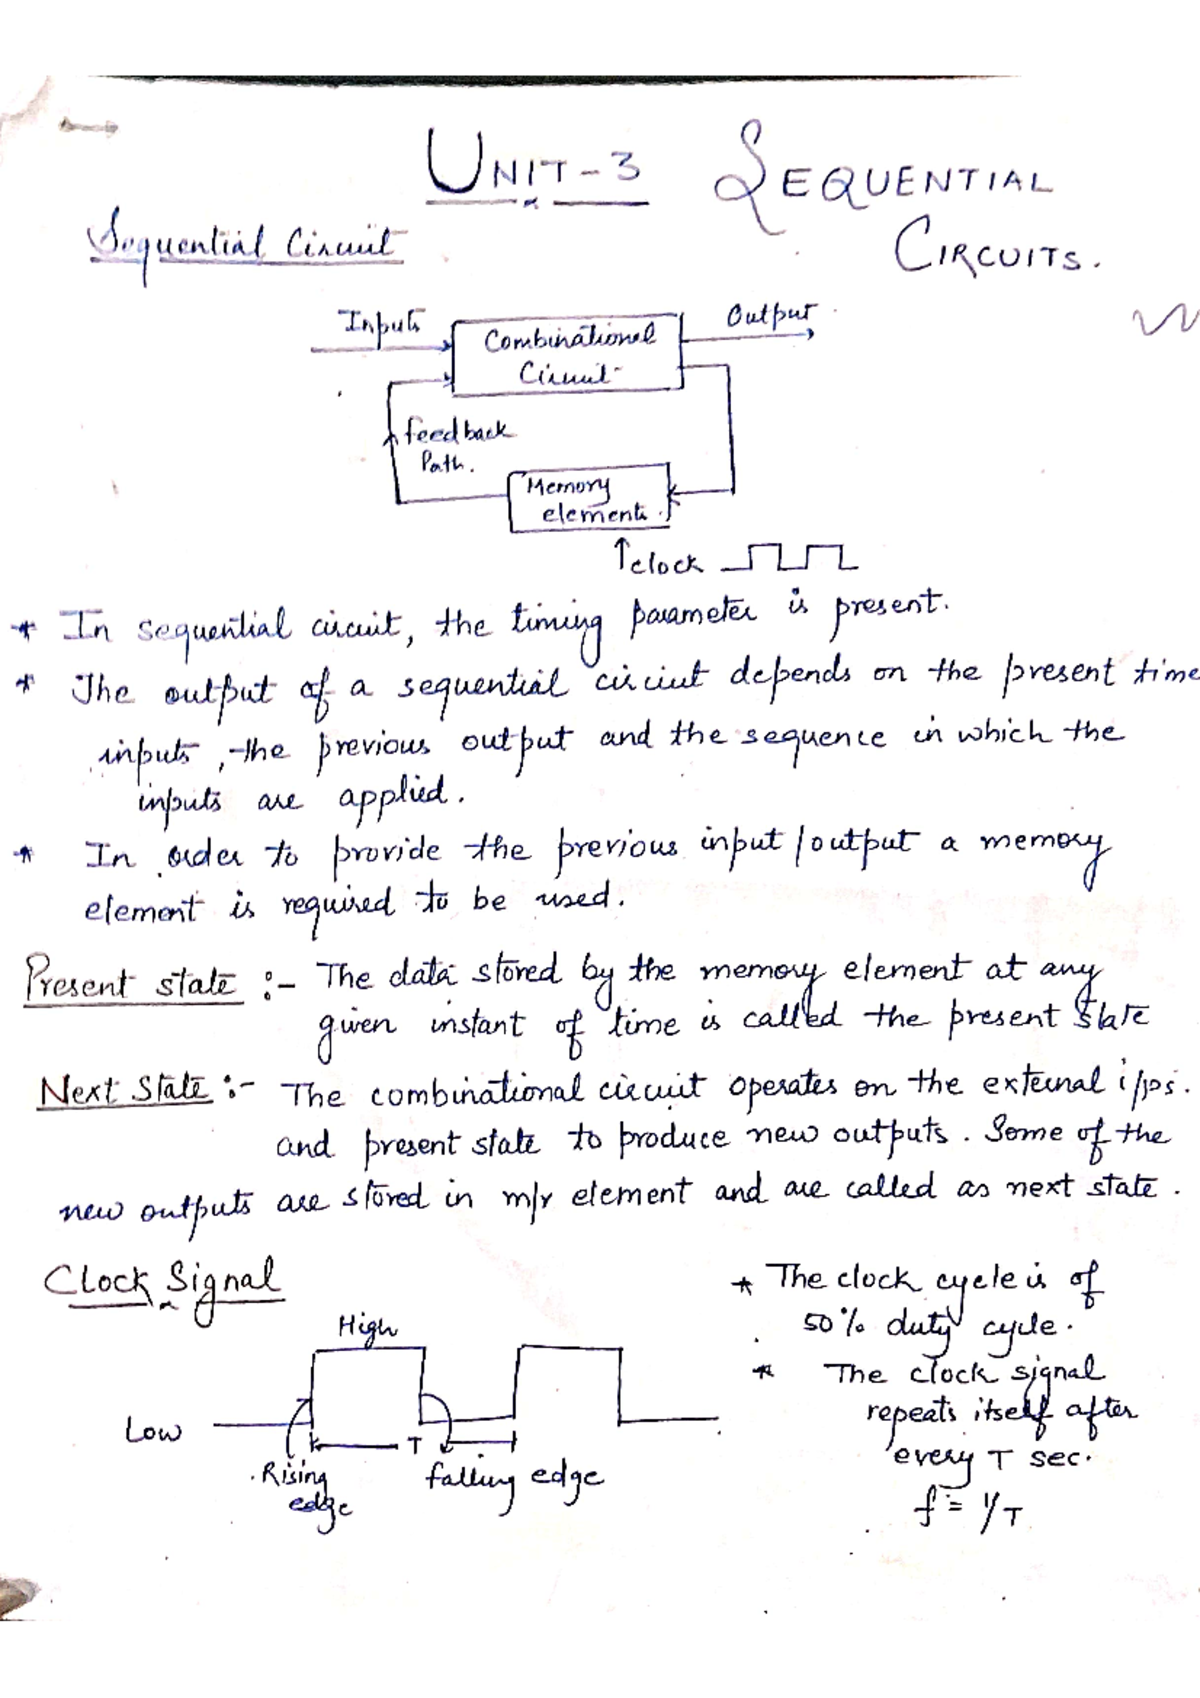 UNIT-3 SEQUENTIAL
CIRCUITS.
Sequential Circuit
Inputs
Combinational
Circuit
Output
feedback
Path.
Memory
elements.
↑clock
* In sequential circuit, the timing parameter is present.
* The output of a sequential circiut depends on the present time
inputs, the previous output and the sequence in which the
inputs are applied.
* In order to provide the previous input/output a memory
element is required to be used.
Present state :- The data stored by the memory element at any
given instant of time is called the present state
Next State :- The combinational circuit operates on the external i/ps.
and present state to produce new outputs. Some of the
new outputs are stored in m/r element and are called as next state.
Clock Signal
High
Low
T
Rising
edge
falling edge
* The clock cycle is of
50% duty cycle.
* The clock signal
repeats itself after
every T sec.
f = 1/T